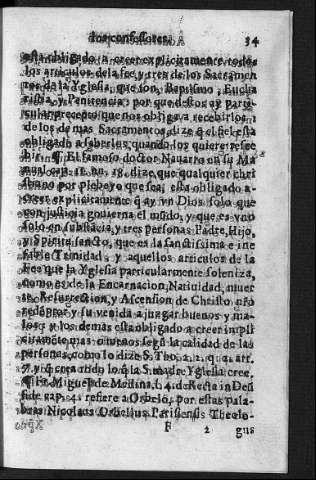 los confessores. 34
està obligado a creer explicitamente todos
los articulos de la fee, y tres de los Sacramen
tos de la Yglesia, que son, Baptismo, Eucha
ristia, y Penitencia; por que destos ay parti-
cular precepto que nos obliga a recebirlos,
de los de mas Sacramentos, dize q̃ el fiel està
obligado a saberlos quando los quiere rece
bir. ¶ El famoso doctor Nauarro en su Ma
nual cap. 11. nu. 18. dize, que qualquier chri
stiano por plebeyo que sea, esta obligado a
creer explicitamente q̃ ay vn Dios solo que
con justicia gouierna el mũdo, y que es vno
solo en substãcia, y tres personas Padre, Hijo,
y Spiritu sancto, que es la sanctissima e ine
fable Trinidad, y aquellos articulos de la
Fee que la Yglesia particularmente soleniza,
como es de la Encarnacion, Natiuidad, muer
te, Resurrection, y Ascension de Christo nr̃o
redẽptor y su venida a juzgar buenos y ma-
los: y los demas esta obligado a creer impli
citamẽte mas o menos segũ la calidad de las
personas, como lo dize S. Tho. 2. 2. q. 2. art.
7. y q̃ crea todo lo q̃ la S. madre Yglesia cree.
¶ Fr. Miguel de Medina, l. 4. de Recta in Deũ
fide cap. 4. refiere a Orbelo, por estas pala-
bras Nicolaus Orbelius Parisiensis Theolo-
F 2 gus